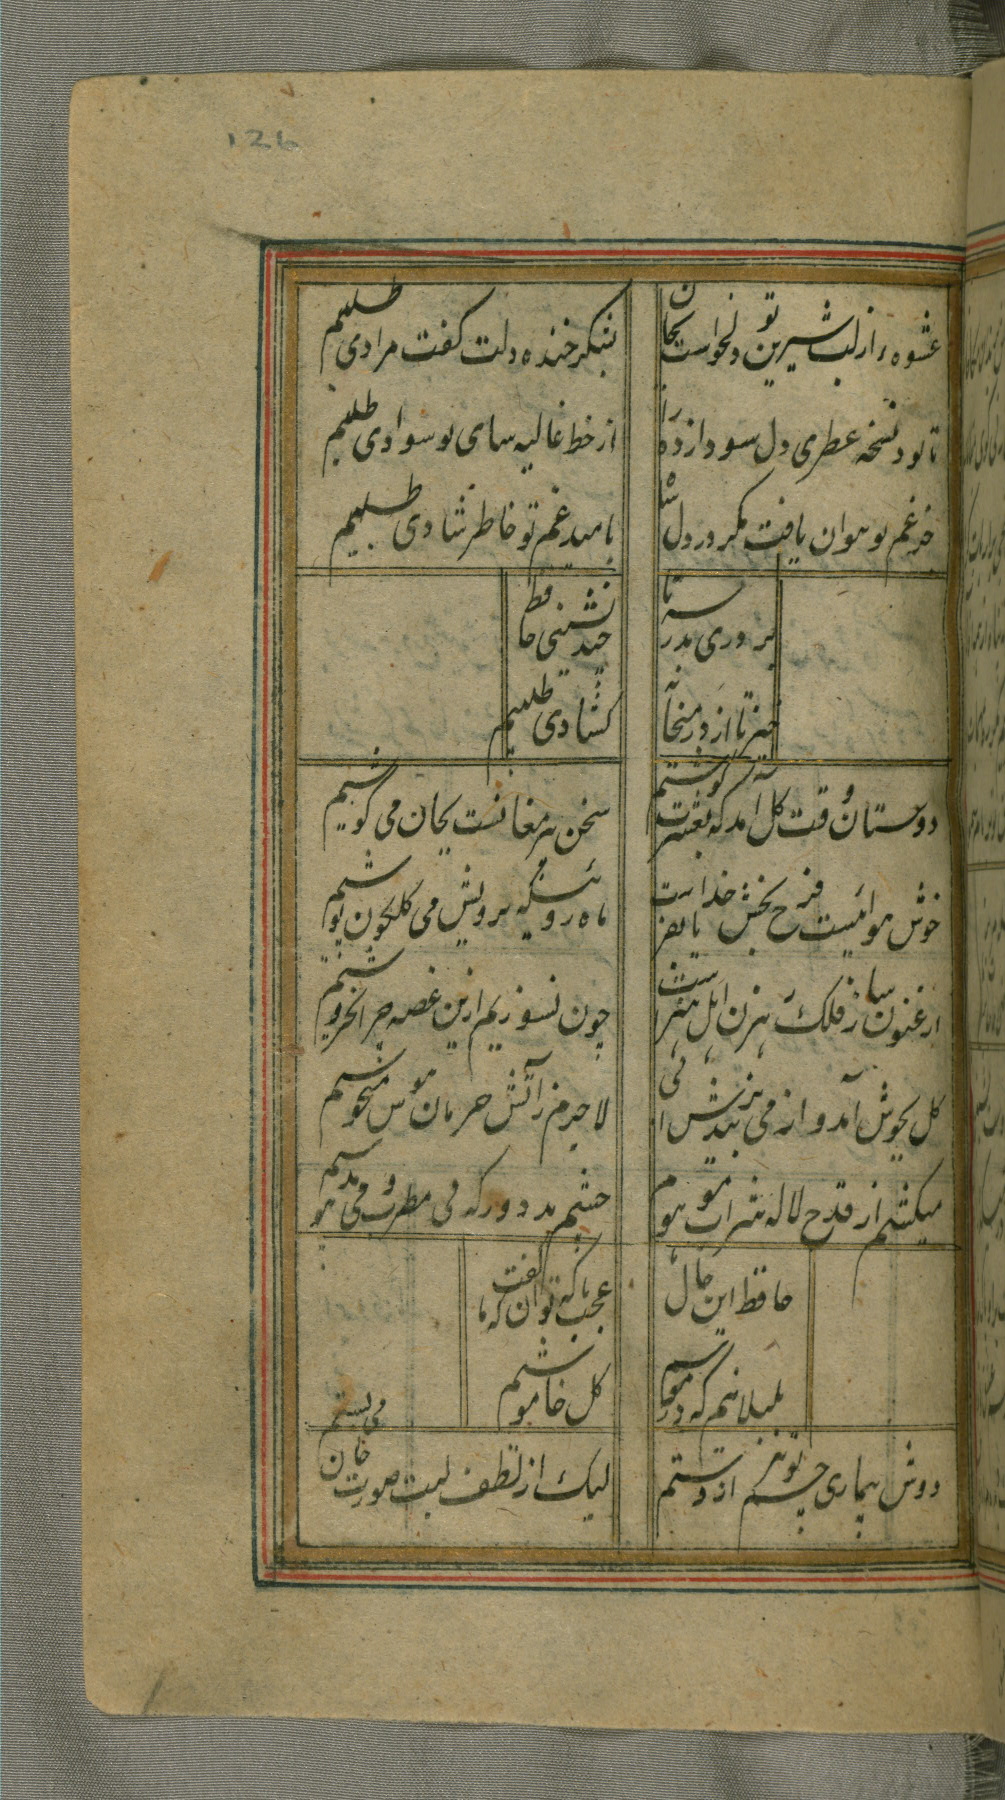 126
عشوه ء از لب شیرین تو دلخواست بجان
بشکر خنده دلت گفت مرادی طلبیم
تا بود نسخه عطری دل سودازده را
از خط غالیه سای تو سوادی طلبیم
جز غم تو نتوان یافت مگر در دل شاد
بامید غم تو خاطر شادی طلبیم
بر در مدرسه تا
چند نشینی حافظ
خیز تا از در میخانه
کشادی طلبیم
دوستان وقت کل آمد که بعشرت کوشیم
سخن پیر مغانست بجان می کوشیم
خوش هوائیست فرح بخش خدایا بفرست
ماه روئیکه برویش می کلکون نوشیم
ارغنون ساز فلک رهزن اهل هنرست
چون نسوزیم ازین غصه چرا نخروشیم
کل بجوش آمد و از می نزدیمش آبی
لاجرم زآتش حرمان هوس میجوشیم
میکشیم از قدح لاله شراب موهوم
چشم بد دور که بی مطرب و می مدهوشیم
حافظ این حال
عجب با که توان گفت که ما
بلبلانیم که در موسم
کل خاموشیم
دوش بیماری چشم تو ببرد از دستم
لیک از لطف لبت صورت جان می بستم